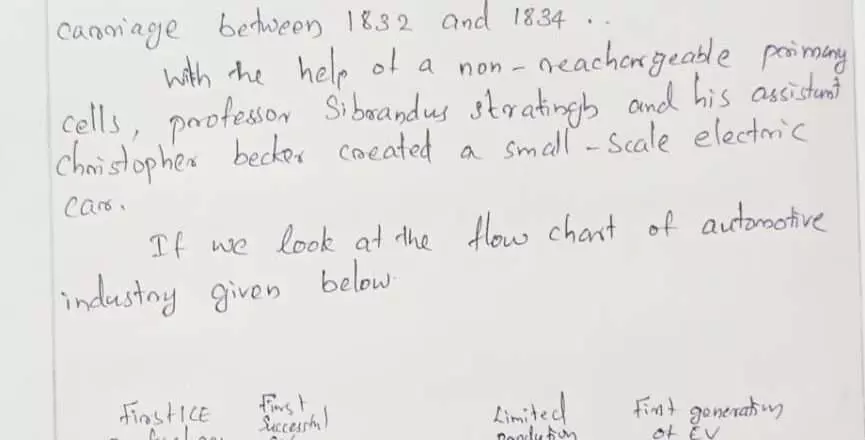 carriage between 1832 and 1834 ..
with the help of a non-reachargeable primary
cells, professor Sibrandus stratingh and his assistant
christopher becker created a small-scale electric
car.
If we look at the flow chart of automotive
industry given below.
First ICE First Limited First generation
Successful Production of EV